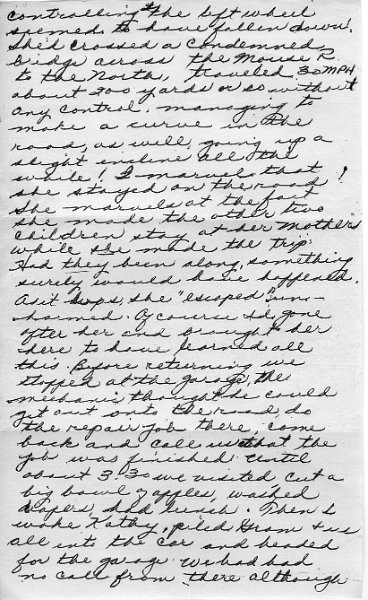 controlling the left wheel
seemed to have fallen down!
She'd crossed a condemned
bridge across the Mouse R.
to the North, traveled 30 MPH
about 200 yards or so without
any control, managing to
make a curve in the
road, as well, going up a
slight incline all the
while! I marvel that
she stayed on the road!
She marvels at the fact
she made the other two
children stay at her Mother's
while she made the trip.
Had they been along, something
surely would have happened.
As it was, she "escaped" un-
harmed. Of course I'd gone
after her and brought her
here to have learned all
this. Before returning we
stopped at the garage, the
mechanic thought he could
get out onto the road, do
the repair job there, come
back and call us that the
job was finished. Until
about 3:30 we visited, cut a
big bowl of apples, washed
diapers, had lunch. Then I
woke Kathy, piled Gram & us
all into the car and headed
for the garage. We had had
no call from there although